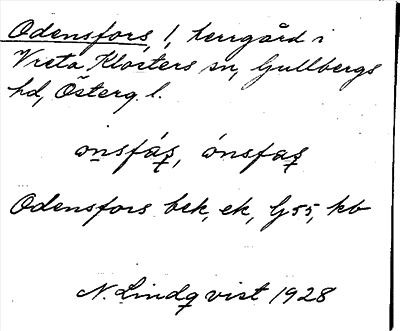 Odensfors, 1, herrgård i
Vreta Klosters sn, Gullbergs
hd, Österg. l.
onsfás, ónsfas
Odensfors bek, ek, G55, kb
N. Lindqvist 1928